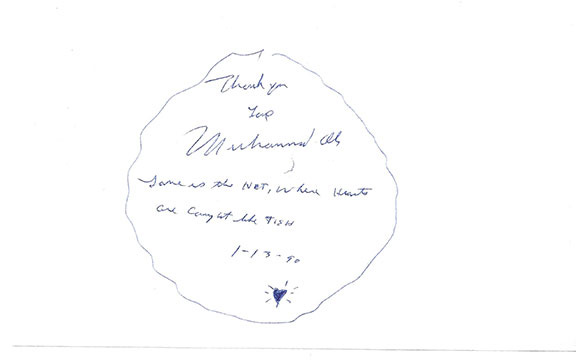 Thank you
Love
Muhammad Ali
Love is the NET, Where Hearts
are caught like FISH
1-13-90